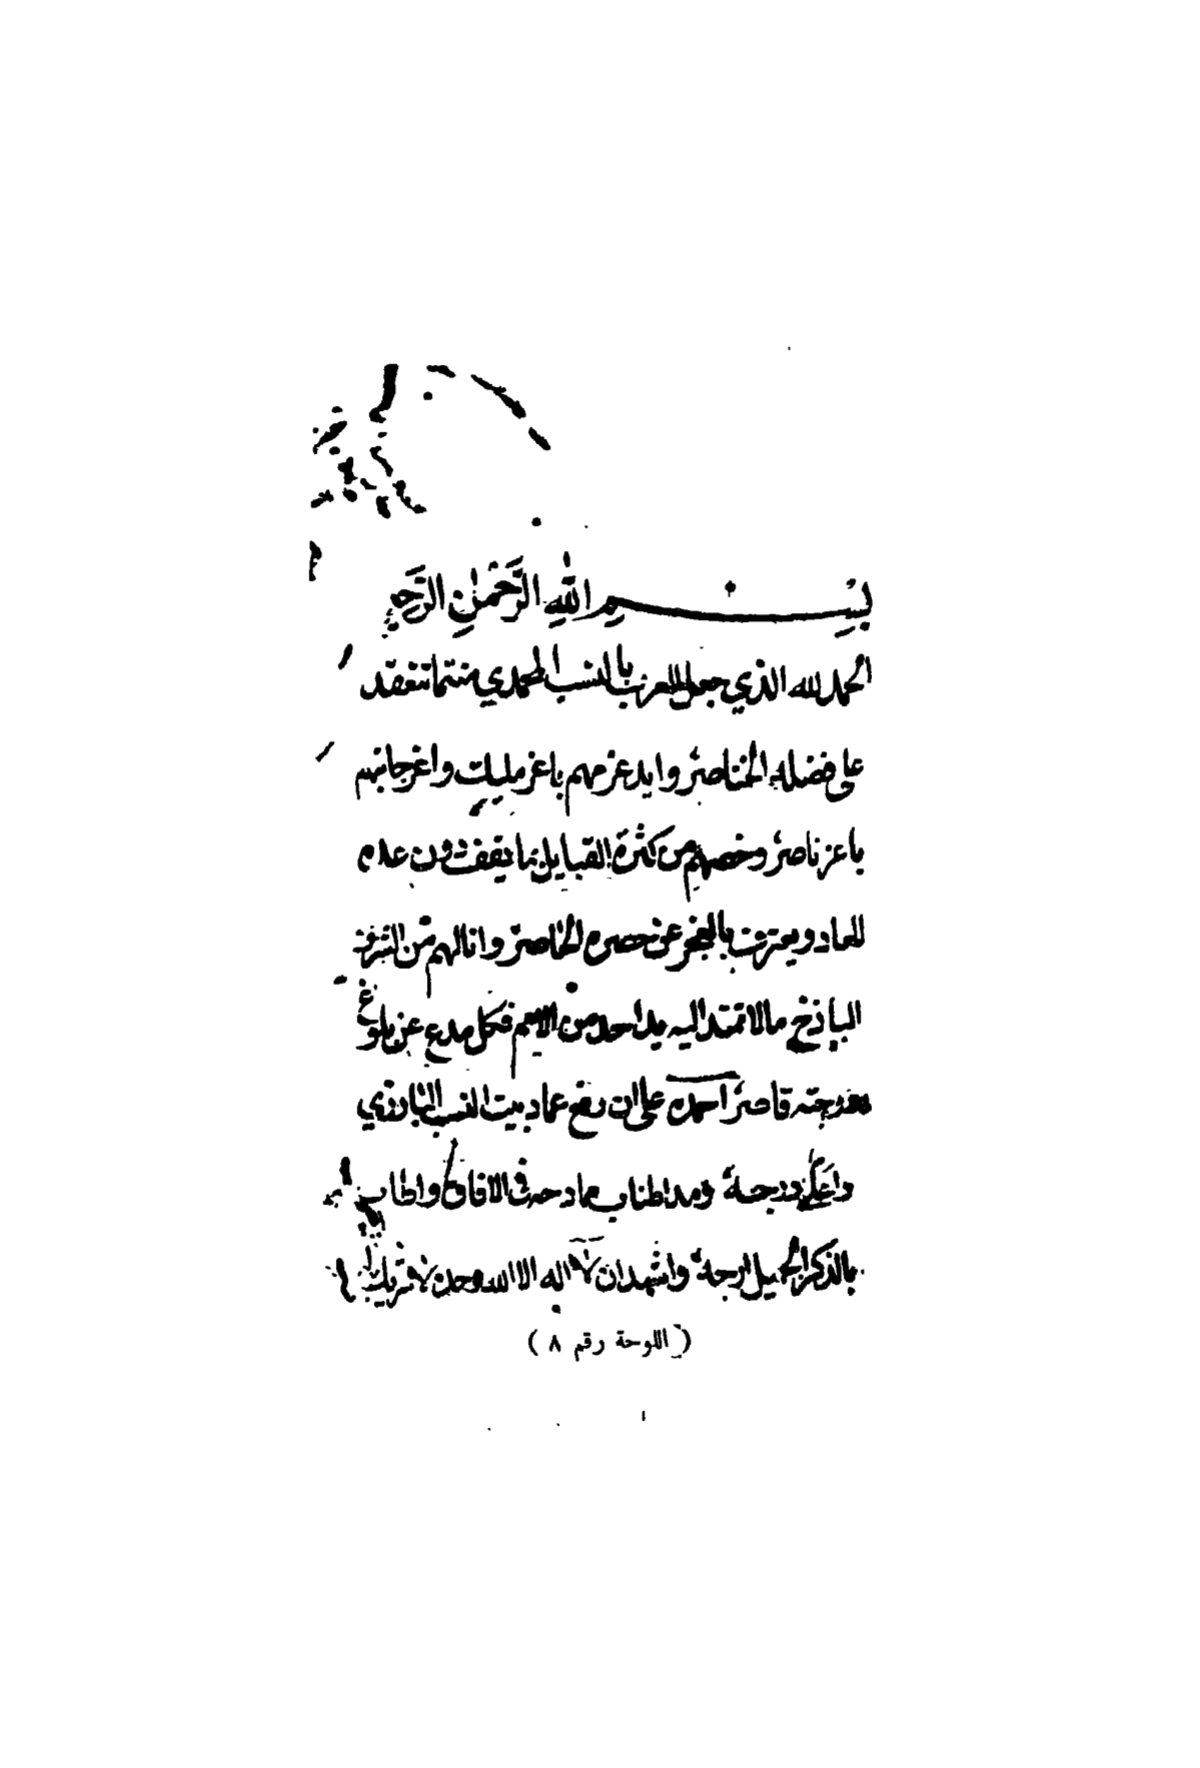 بسم الله الرحمن الرحيم
الحمد لله الذي جعل للعرب بالنسب المحمدي منتما تنعقد
على فضله الخناصر وايد عزمهم باعز مليك واعز جانبهم
باعز ناصر وخصهم من كثرة القبايل بما يقف دون علام
العاد ويعترف بالعجز عن حصره الحاصر وانالهم من الشرف
الباذخ مالا تمتد اليه يد احد من الامم فكل مدع عن بلوغ
درجته قاصر احمده على ان رفع عماد بيت النسب البارزي
واعلى درجه ومد اطناب ممادحه في الافاق واطاب
بالذكر الجميل ارجه واشهد ان لا اله الا الله وحده لا شريك له
(اللوحة رقم ٨)